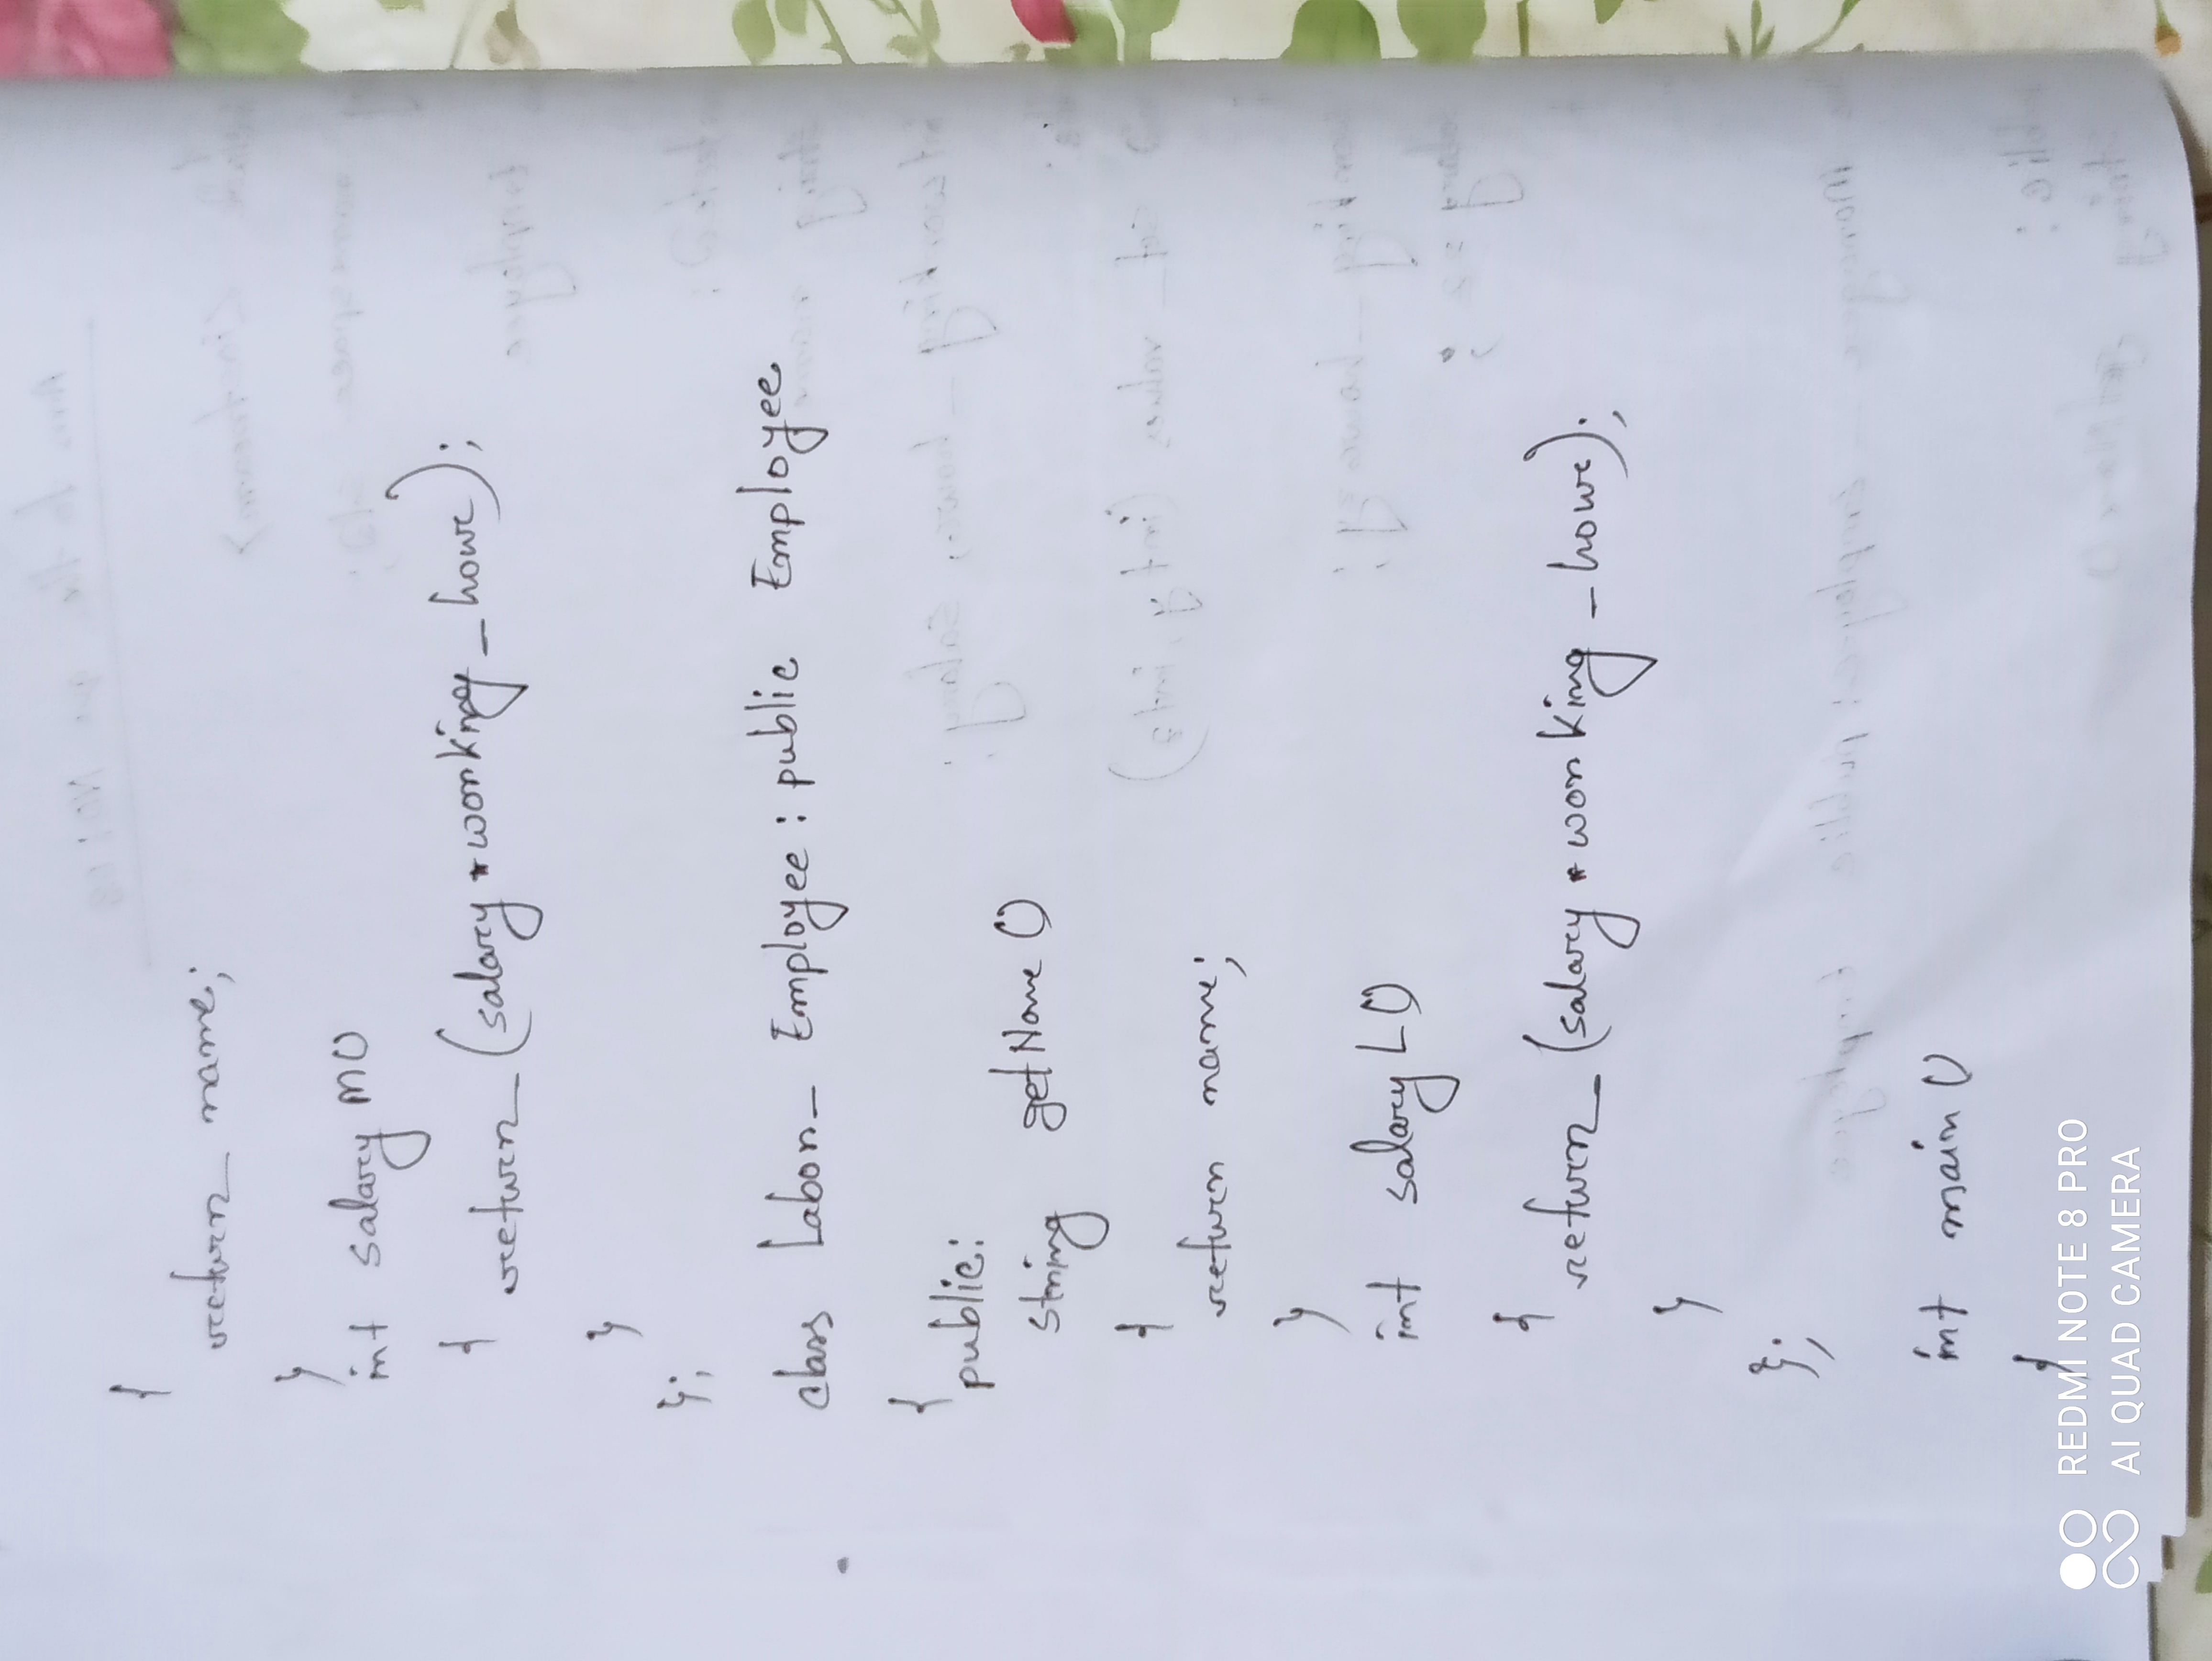 {
return name;
}
int salaryM()
{ return (salary * working_hour);
}
};
class Labor_Employee : public Employee
{
public:
string getName()
{
return name;
}
int salaryL()
{ return (salary * working_hour);
}
};
int main()
{
REDMI NOTE 8 PRO
AI QUAD CAMERA